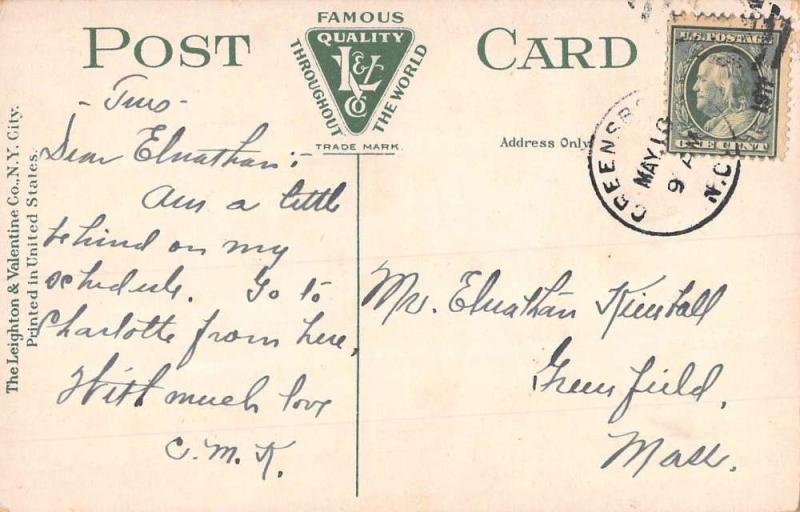 POST CARD
FAMOUS
QUALITY
THROUGHOUT THE WORLD
L & V Co
TRADE MARK.
Address Only
GREENSBO
MAY 18
9 AM
1911
N.C.
U.S. POSTAGE
ONE CENT
The Leighton & Valentine Co., N.Y. City.
Printed in United States.
- Tues -
Dear Elnathan:
Am a little
behind on my
schedule. Go to
Charlotte from here,
With much love
C. M. K.
Mr. Elnathan Kimball
Greenfield,
Mass.